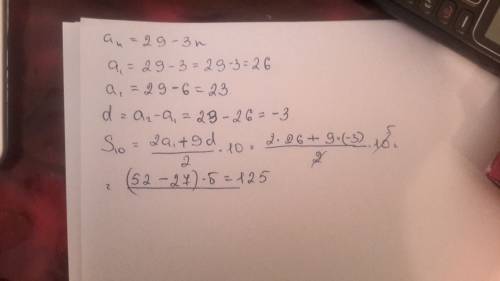 aₙ = 29 - 3n
a₁ = 29 - 3 = 29 - 3 = 26
a₂ = 29 - 6 = 23
d = a₂ - a₁ = 23 - 26 = -3
S₁₀ = (2a₁ + 9d)/2 · 10 = (2 · 26 + 9 · (-3))/2 · 10 5 =
= (52 - 27) · 5 = 125